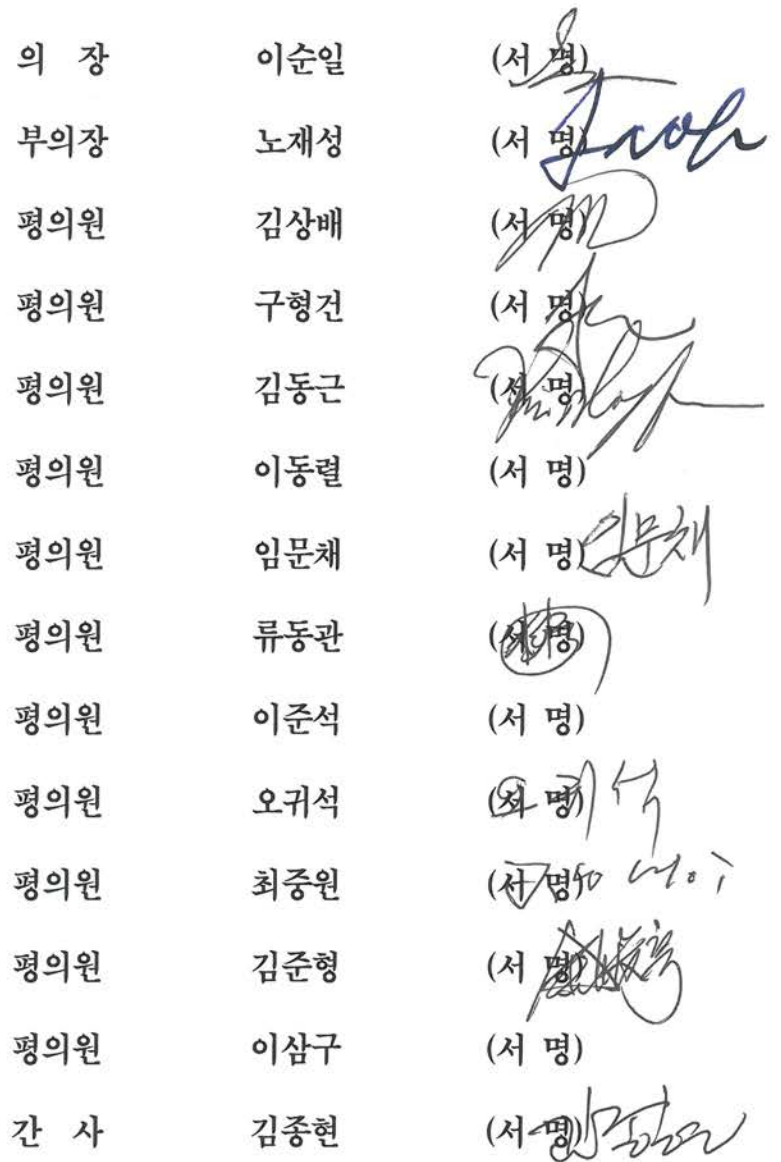 의 장 이순일 (서 명)
부의장 노재성 (서 명)
평의원 김상배 (서 명)
평의원 구형건 (서 명)
평의원 김동근 (서 명)
평의원 이동렬 (서 명)
평의원 임문채 (서 명) 임문채
평의원 류동관 (서 명)
평의원 이준석 (서 명)
평의원 오귀석 (서 명) 오귀석
평의원 최중원 (서 명)
평의원 김준형 (서 명)
평의원 이삼구 (서 명)
간 사 김종현 (서 명)